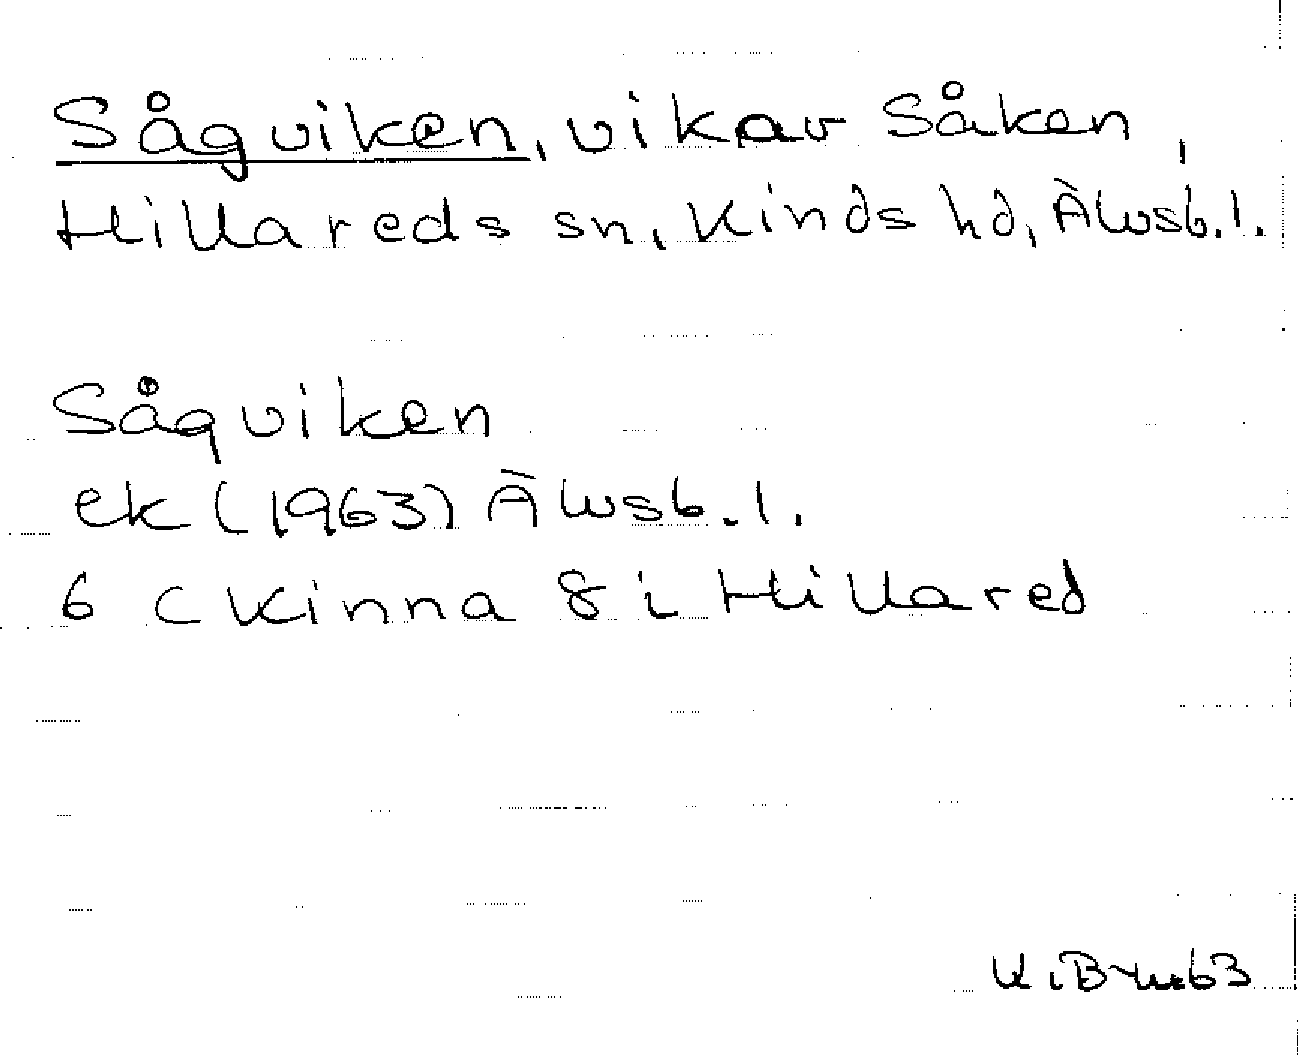 Sågviken, vik av Såken,
Hillareds sn, Kinds hd, Älvsb. l.
Sågviken
ek (1963) Älvsb. l.
6 C Kinna 8 i Hillared